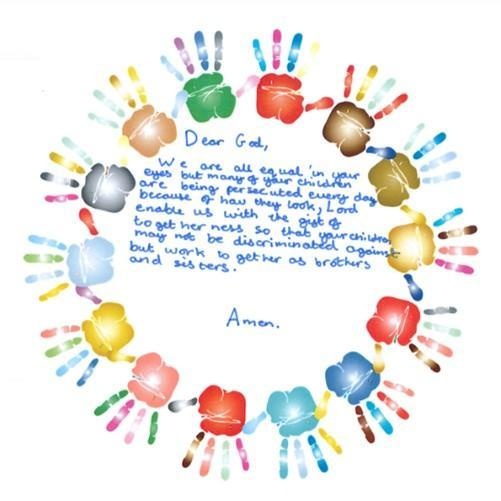 Dear God,
We are all equal in your
eyes but many of your children
are being persecuted every day
because of how they look, Lord
enable us with the gift of
to get her ness so that your children
may not be discriminated against
but work to get her as brothers
and sisters.
Amen.